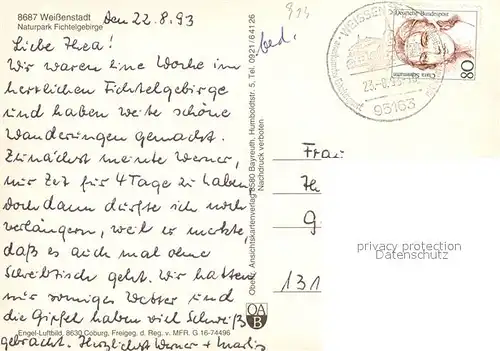 8687 Weißenstadt
Naturpark Fichtelgebirge
den 22.8.93
Liebe Thea!
Wir waren eine Woche im
herrlichen Fichtelgebirge
und haben weite schöne
Wanderungen gemacht.
Zunächst meinte Werner,
nur Zeit für 4 Tage zu haben
doch dann durfte ich noch
verlängern, weil er merkte,
daß es auch mal ohne
Schreibtisch geht. Wir hatten
nur sonniges Wetter und
die Gipfel haben viel Schweiß
gebracht. Herzlichst Werner + Marlis
Engel-Luftbild, 8630 Coburg, Freigeg. d. Reg. v. MFR. G 16-74496
Ansichtskartenverlag 8580 Bayreuth, Humboldtstr. 5, Tel. 0921/64126
Nachdruck verboten
OA
B
bed.
WEISSENS
23.-8.93
95163
Deutsche Bundespost
Clara Schumann
80
Frau
Th
G
131
privacy protection
Datenschutz